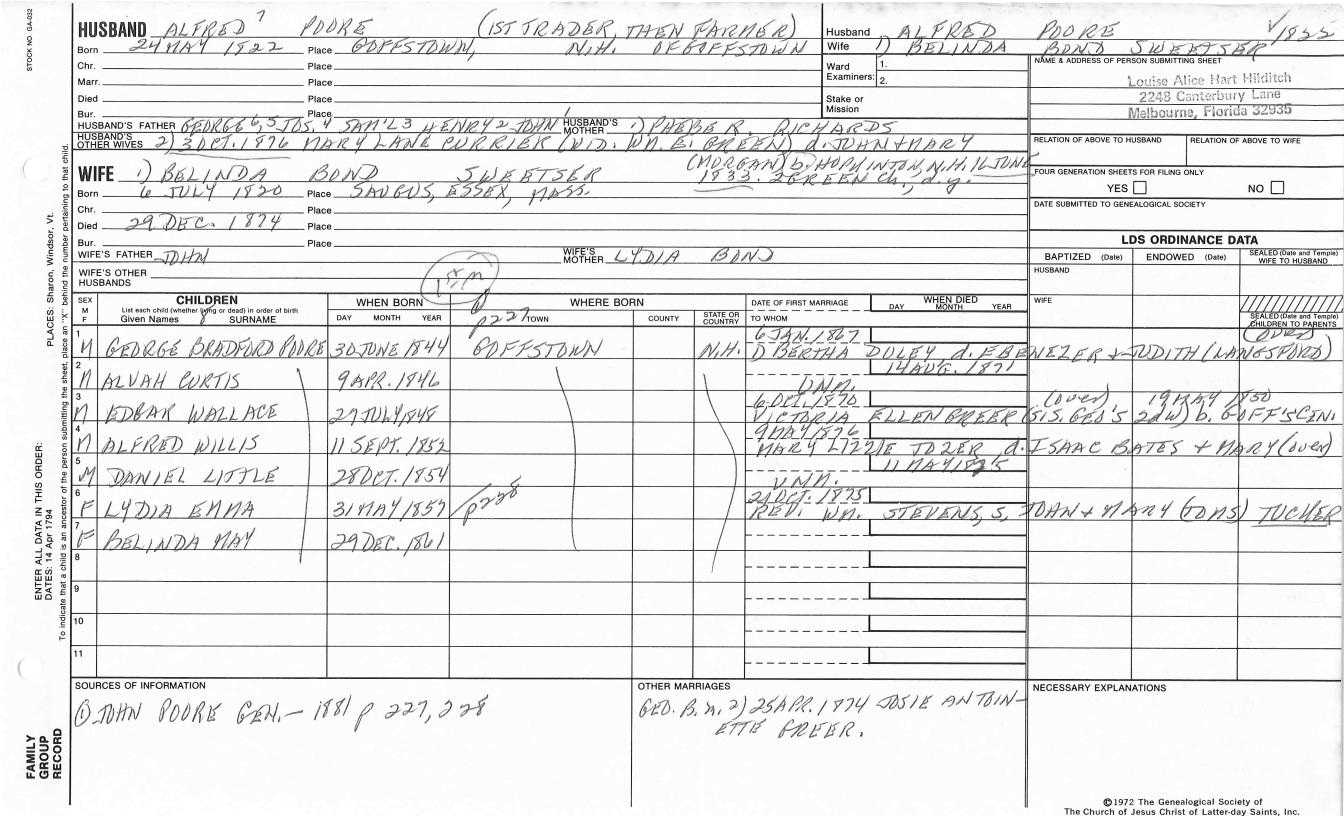 STOCK NO. GA-032
HUSBAND ALFRED 7 POORE (1ST TRADER, THEN FARMER)
Born 24 MAY 1822 Place GOFFSTOWN, N.H. OF GOFFSTOWN
Chr. Place
Marr. Place
Died Place
Bur. Place
HUSBAND'S FATHER GEORGE 6, 5 JOS. 4 SAM'L 3 HENRY 2 JOHN 1 HUSBAND'S MOTHER 1) PHEBE R. RICHARDS
HUSBAND'S OTHER WIVES 2) 3 OCT. 1876 MARY LANE CURRIER (WID. WM. E. GREEN) d. JOHN + MARY
(MORGAN) b. HOPKINTON, N.H. 16 JUNE
1833. 2 GREEN Ch., d.y.
WIFE 1) BELINDA BOND SWEETSER
Born 6 JULY 1820 Place SAUGUS, ESSEX, MASS.
Chr. Place
Died 29 DEC. 1874 Place
Bur. Place
WIFE'S FATHER JOHN WIFE'S MOTHER LYDIA BOND
WIFE'S OTHER HUSBANDS
Husband ALFRED POORE √1822
Wife 1) BELINDA BOND SWEETSER
Ward Examiners: 1.
2.
Stake or Mission
NAME & ADDRESS OF PERSON SUBMITTING SHEET
Louise Alice Hart Hilditch
2248 Canterbury Lane
Melbourne, Florida 32935
RELATION OF ABOVE TO HUSBAND RELATION OF ABOVE TO WIFE
FOUR GENERATION SHEETS FOR FILING ONLY
YES NO
DATE SUBMITTED TO GENEALOGICAL SOCIETY
LDS ORDINANCE DATA
BAPTIZED (Date) ENDOWED (Date) SEALED (Date and Temple) WIFE TO HUSBAND
HUSBAND
WIFE
SEALED (Date and Temple) CHILDREN TO PARENTS
SEX M F
CHILDREN
List each child (whether living or dead) in order of birth
Given Names 8 SURNAME
WHEN BORN
DAY MONTH YEAR
WHERE BORN
p227 TOWN COUNTY STATE OR COUNTRY
DATE OF FIRST MARRIAGE
TO WHOM
WHEN DIED
DAY MONTH YEAR
6 JAN. 1867 (over)
1 M GEORGE BRADFORD POORE 30 JUNE 1844 GOFFSTOWN N.H. D BERTHA DOLEY d. EBENEZER + JUDITH (LANGSFORD)
14 AUG. 1871
2 M ALVAH CURTIS 9 APR. 1846 UNM.
6 OCT. 1870 (over) 19 MAY 1850
3 M EDGAR WALLACE 27 JULY 1848 VICTORIA ELLEN GREER (SIS. GEO'S 2d W) b. GOFF'S CEN.
9 MAY 1876
4 M ALFRED WILLIS 11 SEPT. 1852 MARY LIZZIE TOZER d. ISAAC BATES + MARY (over)
11 MAY 1875
5 M DANIEL LITTLE 28 OCT. 1854 UNM.
p228 21 OCT. 1875
6 F LYDIA EMMA 31 MAY 1857 REV. WM. STEVENS, S. JOHN + MARY (TOMS) TUCHER
7 F BELINDA MAY 29 DEC. 1861
8
9
10
11
SOURCES OF INFORMATION
① JOHN POORE GEN. - 1881 p 227, 228
OTHER MARRIAGES
GEO. B. m. 2) 25 APR. 1874 JOSIE ANTOIN-
ETTE GREER.
NECESSARY EXPLANATIONS
©1972 The Genealogical Society of
The Church of Jesus Christ of Latter-day Saints, Inc.
FAMILY GROUP RECORD
ENTER ALL DATA IN THIS ORDER:
DATES: 14 Apr 1794
PLACES: Sharon, Windsor, Vt.
To indicate that a child is an ancestor of the person submitting the sheet, place an "X" behind the number pertaining to that child.